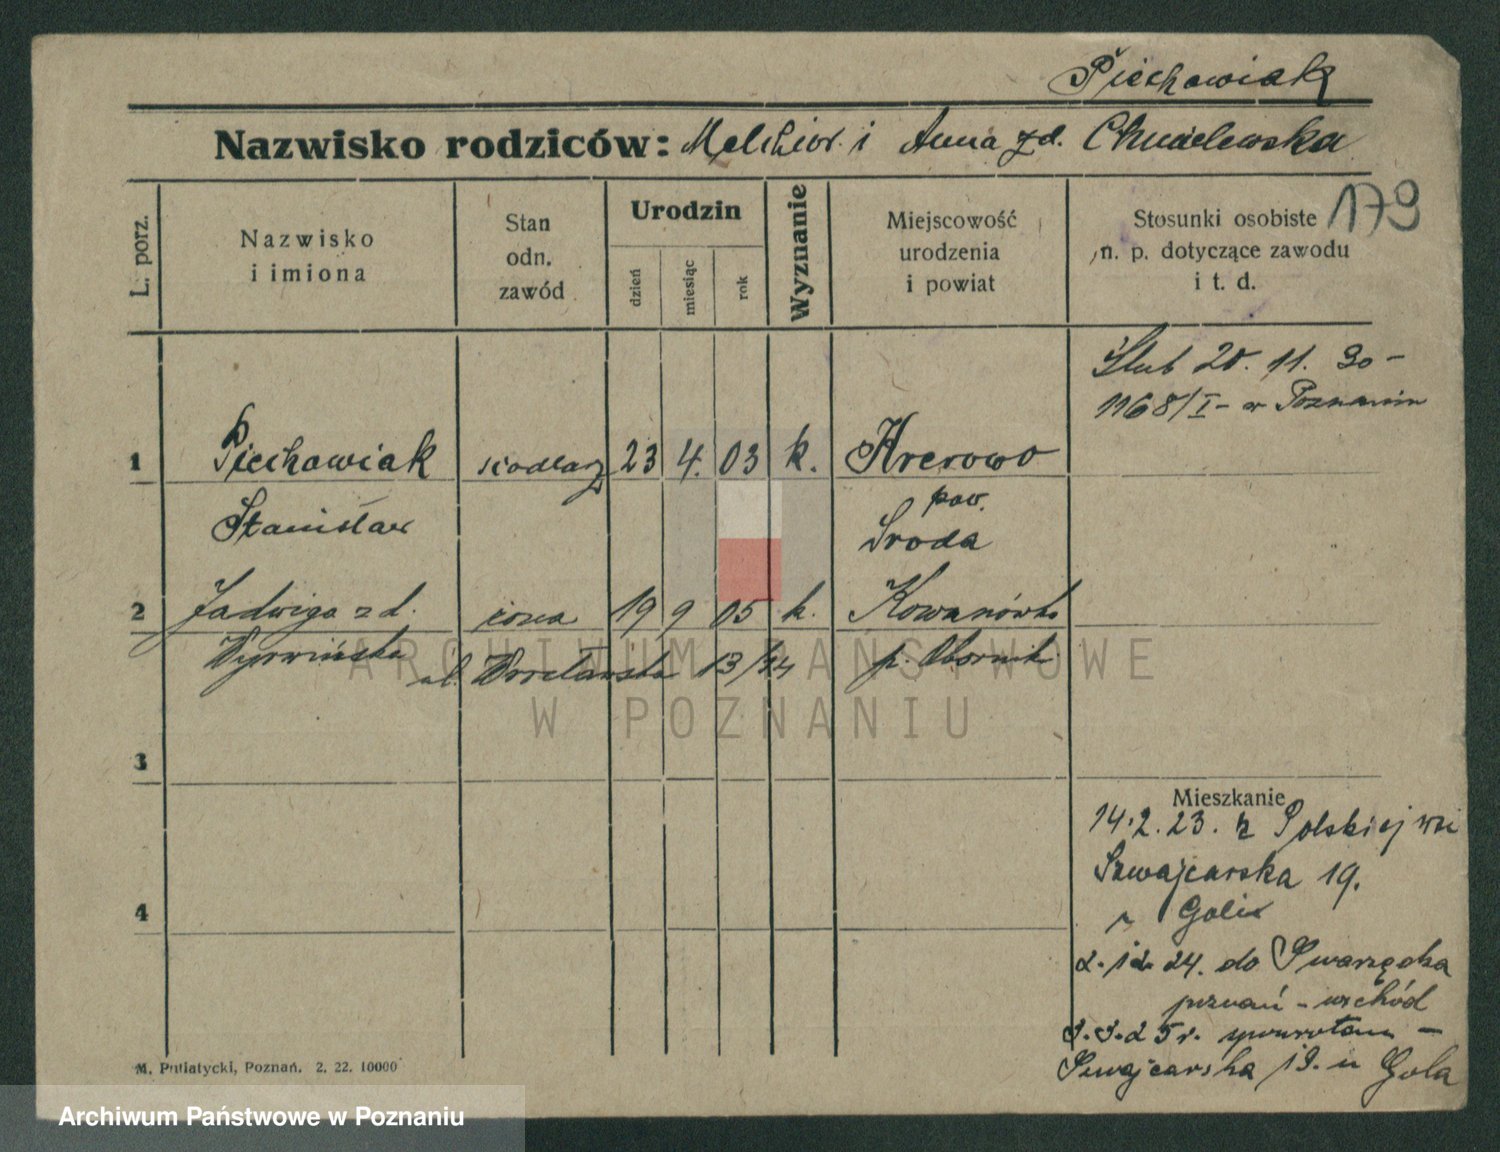 Piechowiak
Nazwisko rodziców: Melchior i Anna zd. Chmielewska
179
L. porz.
Nazwisko
i imiona
Stan
odn.
zawód
Urodzin
dzień
miesiąc
rok
Wyznanie
Miejscowość
urodzenia
i powiat
Stosunki osobiste
n. p. dotyczące zawodu
i t. d.
Ślub 20. 11. 30 -
1168/I - w Poznaniu
1 Piechowiak siodlarz 23 4. 03 k. Krerowo
Stanisław
pow.
Środa
2 Jadwiga zd. żona 19 9 05 k. Kowanówko
Wyrwińska ul. Wrocławska 13/14 p. Obornik
3
4
Mieszkanie
14.2.23. z Polskiej wsi
Szwajcarska 19.
Golis
2. 12 24. do Swarzędza
poznań - wschód
3. 3. 25 r. spowrotem -
Szwajcarska 19. u Gola
M. Putiatycki, Poznań. 2. 22. 10000
ARCHIWUM PAŃSTWOWE
W POZNANIU
Archiwum Państwowe w Poznaniu